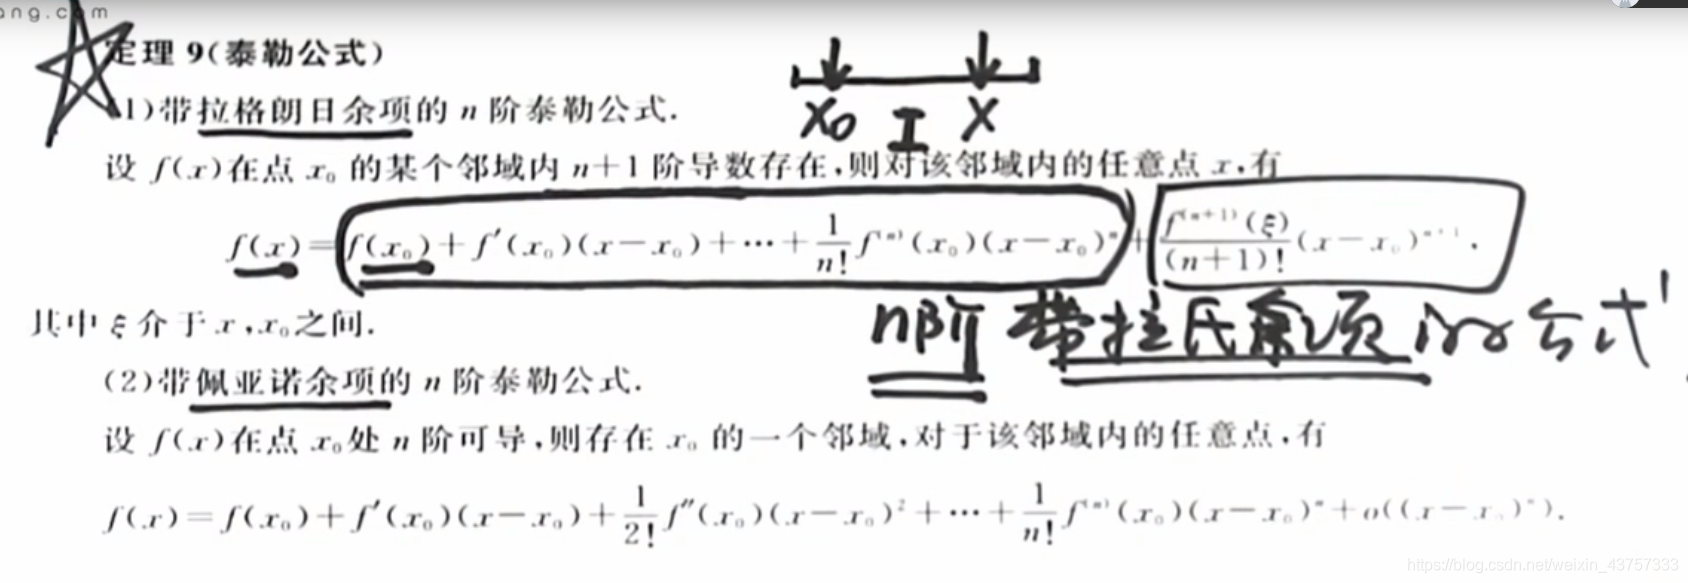 ang.com
定理 9(泰勒公式)
(1)带拉格朗日余项的 n 阶泰勒公式.
x₀ I x
设 f(x)在点 x₀ 的某个邻域内 n+1 阶导数存在,则对该邻域内的任意点 x,有
f(x)=f(x₀)+f′(x₀)(x−x₀)+⋯+\frac{1}{n!}f⁽ⁿ⁾(x₀)(x−x₀)ⁿ+\frac{f⁽ⁿ⁺¹⁾(ξ)}{(n+1)!}(x−x₀)ⁿ⁺¹.
其中 ξ 介于 x,x₀之间.
n阶 带拉氏余项 的公式
(2)带佩亚诺余项的 n 阶泰勒公式.
设 f(x)在点 x₀处 n 阶可导,则存在 x₀ 的一个邻域,对于该邻域内的任意点,有
f(x)=f(x₀)+f′(x₀)(x−x₀)+\frac{1}{2!}f″(x₀)(x−x₀)²+⋯+\frac{1}{n!}f⁽ⁿ⁾(x₀)(x−x₀)ⁿ+o((x−x₀)ⁿ).
https://blog.csdn.net/weixin_43757333